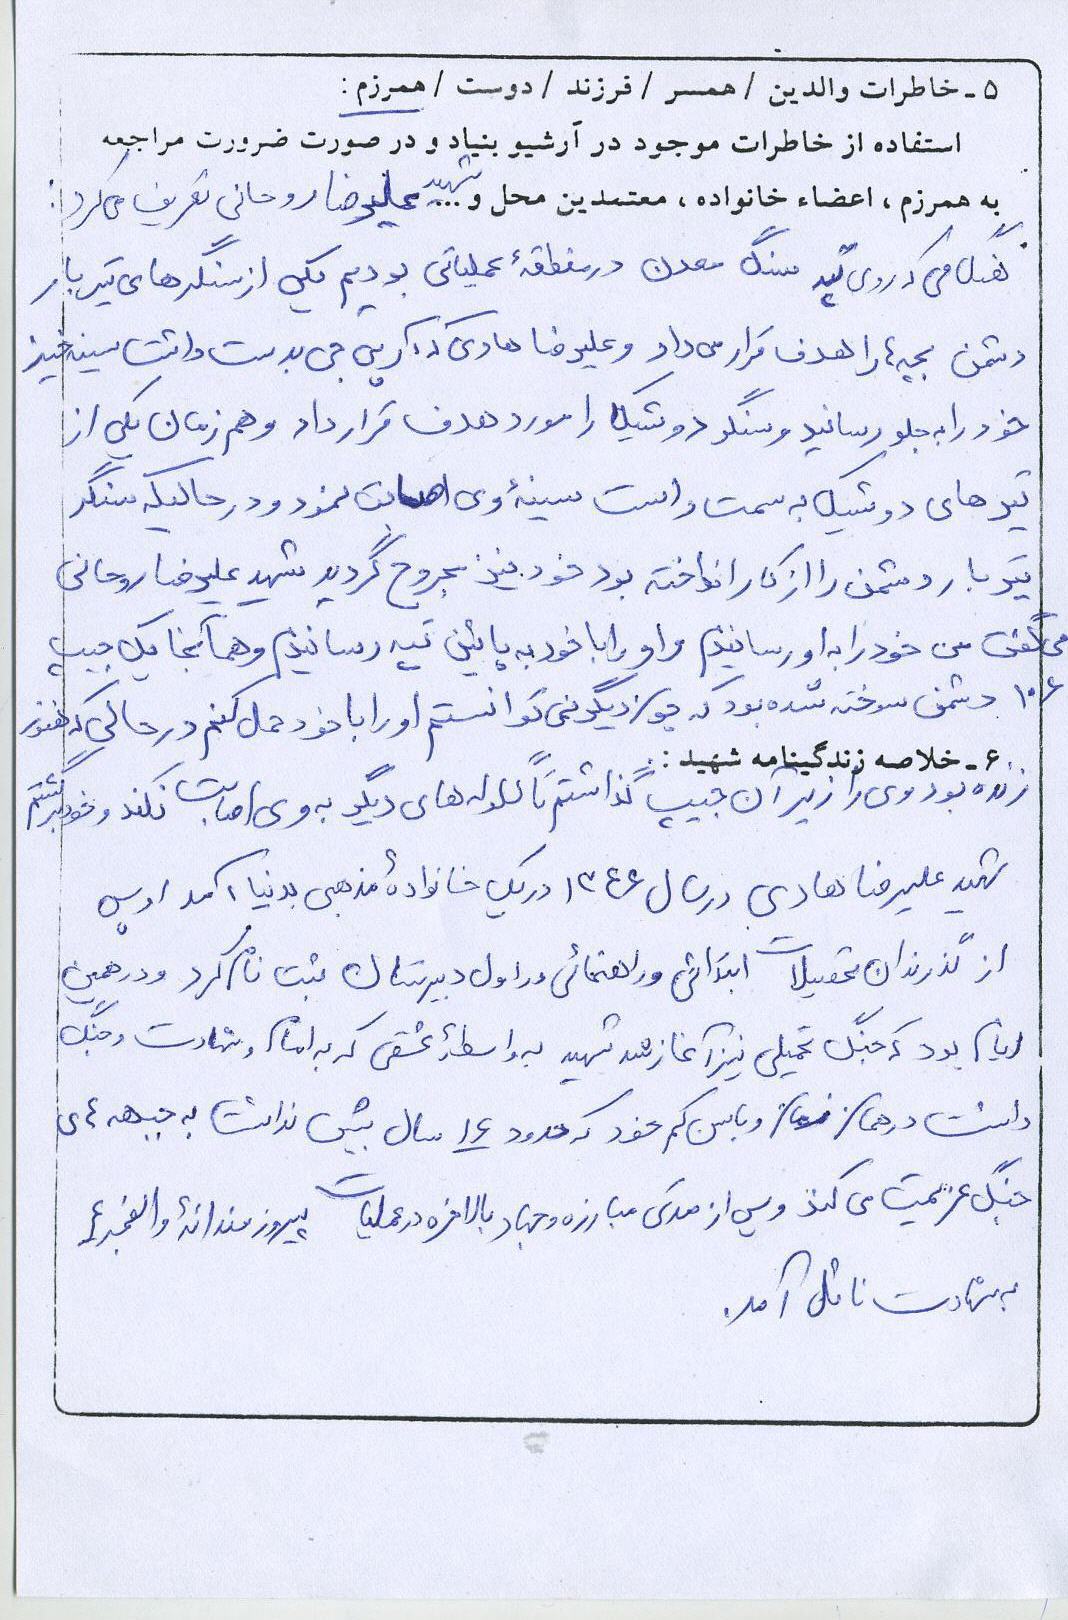 ۵ ـ خاطرات والدین / همسر / فرزند / دوست / همرزم :
استفاده از خاطرات موجود در آرشیو بنیاد و در صورت ضرورت مراجعه
به همرزم ، اعضاء خانواده ، معتمدین محل و ... شهید علیرضا روحانی تعریف می کرد :
که روی تپه سنگ معدن در منطقهٔ عملیاتی بودیم یکی از سنگرهای تیر بار
دشمن بچه ها را هدف قرار می داد و علیرضا هادی که آر پی جی بدست داشت سینه خیز
خود را به جلو رسانید و سنگر دوشیکا را مورد هدف قرار داد و هم زمان یکی از
تیر های دوشیکا به سمت راست سینهٔ وی اصابت نمود و در حالیکه سنگر
تیر بار دشمن را از کار انداخته بود خود نیز مجروح گردید شهید علیرضا روحانی
می گفت من خود را به او رسانیدم و او را با خود به پائین تپه رسانیدم و همانجا یک جیپ
۱۰۶ دشمن سوخته شده بود که چون دیگر نمی توانستم او را با خود حمل کنم در حالی که هنوز
۶ ـ خلاصه زندگینامه شهید :
زنده بود وی را زیر آن جیپ گذاشتم تا گلوله های دیگر به وی اصابت نکند و خود برگشتم
شهید علیرضا هادی در سال ۱۳۴۶ در یک خانوادهٔ مذهبی بدنیا آمد او پس
از گذراندن تحصیلات ابتدائی و راهنمائی در اول دبیرستان ثبت نام کرد و در همین
ایام بود که جنگ تحمیلی نیز آغاز شد شهید به واسطهٔ عشقی که به امام و شهادت و جنگ
داشت در همان و با سن کم خود که حدود ۱۶ سال بیش نداشت به جبهه های
جنگ عزیمت می کند و پس از مدتی مبارزه و جهاد بالاخره در عملیات پیروزمندانهٔ والفجر ۴
به شهادت نائل آمد.